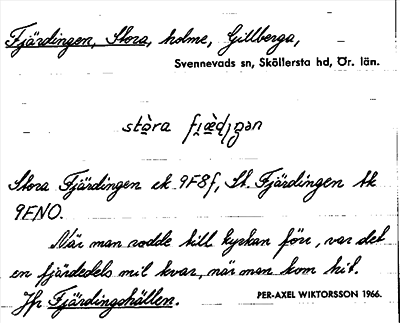 Fjärdingen, Stora, holme, Gillberga,
Svennevads sn, Sköllersta hd, Ör. län.
stòra fjæ̀dıŋən
Stora Fjärdingen ek 9F8f, St. Fjärdingen tk
9ENO.
När man rodde till kyrkan förr, var det
en fjärdedels mil kvar, när man kom hit.
Jfr Fjärdingshällen.
PER-AXEL WIKTORSSON 1966.